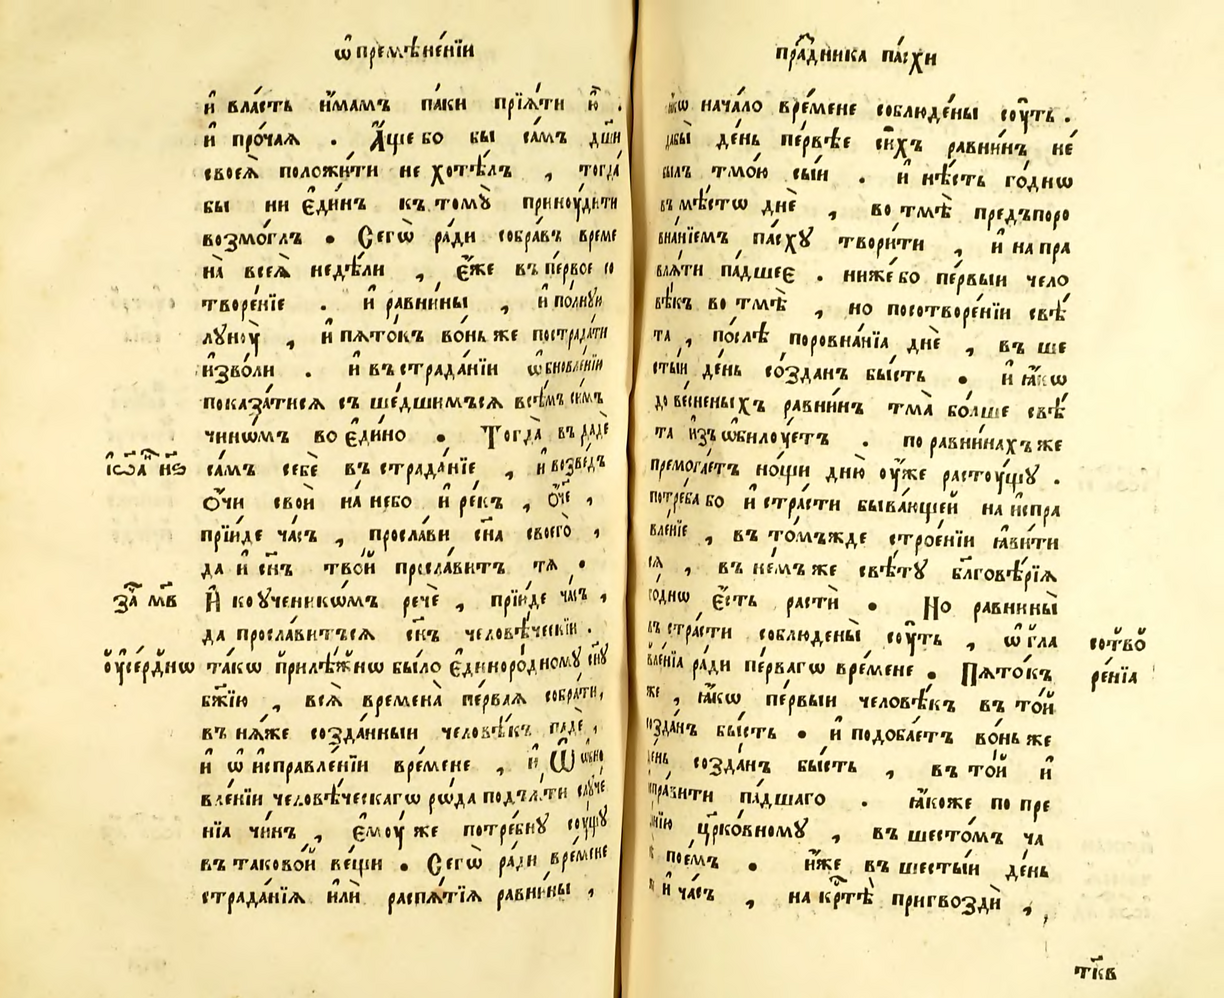 ѡ҆ премѣне́нїи
и҆ вла́сть и҆́мамъ па́ки прїѧ́ти ю҆̀ .
и҆ про́чаѧ . А҆́ще бо бы са́мъ дш҃и
своеѧ̀ положи́ти не хотѣ́лъ , тогда̀
бы ни є҆ди́нъ къ томꙋ̀ принꙋ́дити
возмо́глъ . Сегѡ̀ ра́ди собра́въ време
на̀ всеѧ̀ недѣ́ли , є҆́же въ пе́рвое со
творе́нїе . и҆ равни́ны , и҆ по́лнꙋи
лꙋнꙋ̀ , и҆ пѧто́къ во́ньже пострада́ти
и҆зво́ли . и҆ въ страда́нїи ѡ҆бновле́нїи
показа́тисѧ съше́дшимъсѧ всѣ́мъ си́мъ
чинѡ́мъ во є҆ди́но . Тогда̀ въдадѐ
і҆ѡа҃ н҃ѳ са́мъ себѐ въ страда́нїе , и҆ возве́дъ
ѻ҆́чи своѝ на́ небо и҆ ре́къ , ѻ҆́ч҃е ,
прїи́де ча́съ , просла́ви сн҃а своего̀ ,
да и҆ сн҃ъ тво́й просла́витъ тѧ .
за҃ м҃в И҆ ко ᲂу҆ченикѡ́мъ речѐ , прїи́де ча́съ ,
да просла́витъсѧ сн҃ъ человѣ́ческїи .
ᲂу҆се́рднѡ та́кѡ прилѣ́жнѡ бы́ло є҆диноро́дномꙋ сн҃ꙋ
бж҃їю , всѧ̀ времена̀ пе́рваѧ собра́ти ,
въ нѧ́же созда́нныи человѣ́къ падѐ ,
и҆ ѡ҆ и҆справле́нїи вре́мене , и҆ Ѿ ѡ҆бно
вле́нїи человѣ́ческагѡ ро́да под̾ѧ́ти слꙋче́
нїа чи́нъ , є҆мꙋ́же потре́бнꙋ сꙋ́щꙋ
въ таково́й ве́щи . Сегѡ̀ ра́ди вре́мене
страда́нїѧ и҆лѝ распѧ́тїѧ равни́ны ,
пра́здника па́схи
ꙗ҆́кѡ нача́ло вре́мене соблюде́ны сꙋ́ть .
дабы̀ де́нь пе́рвѣе си́хъ равни́нъ не́
былъ тмо́ю сы́й . и҆ нѣ́сть го́днѡ
въ мѣ́стѡ днѐ , во тмѣ̀ пред̾поро
внанїемъ па́схꙋ твори́ти , и҆ напра
влѧ́ти па́дшеє . ниже́ бо пе́рвыи чело
вѣ́къ во тмѣ̀ , но по сотворе́нїи свѣ́
та , по́слѣ поровна́нїа днѐ , въ ше
сты́и де́нь со́зданъ бы́сть . и҆ ꙗ҆́кѡ
до весненыхъ равни́нъ тма̀ бо́лше свѣ́
та и҆з̾ѡби́лꙋетъ . по равни́нахъ же
премога́етъ но́щи дню̀ ᲂу҆́же растꙋ́щꙋ .
потре́ба бо и҆ стра́сти быва́ющей на и҆спра
вле́нїе , въ то́мъжде строе́нїи ꙗ҆ви́ти
сѧ , въ не́мъже свѣ́тꙋ бл҃говѣ́рїѧ
го́днѡ є҆́сть растѝ . Но равнины̀
въ стра́сти соблюдены̀ сꙋ́ть , ѡ҆гла
сотво
вле́нїа ра́ди пе́рвагѡ вре́мене . Пѧто́къ
ре́нїа
же , ꙗ҆́кѡ пе́рвыи человѣ́къ въ то́й
со́зданъ бы́сть . и҆ подоба́етъ во́ньже
де́нь со́зданъ бы́сть , въ то́й и҆
и҆спра́вити па́дшаго . ꙗ҆́коже по пре
да́нїю цр҃ко́вномꙋ , въ шесто́мъ ча
сѣ̀ пое́мъ . и҆́же въ шесты́и де́нь
и҆ ча́съ , на крⷭ҇тѣ̀ пригвоздѝ ,
тк҃в